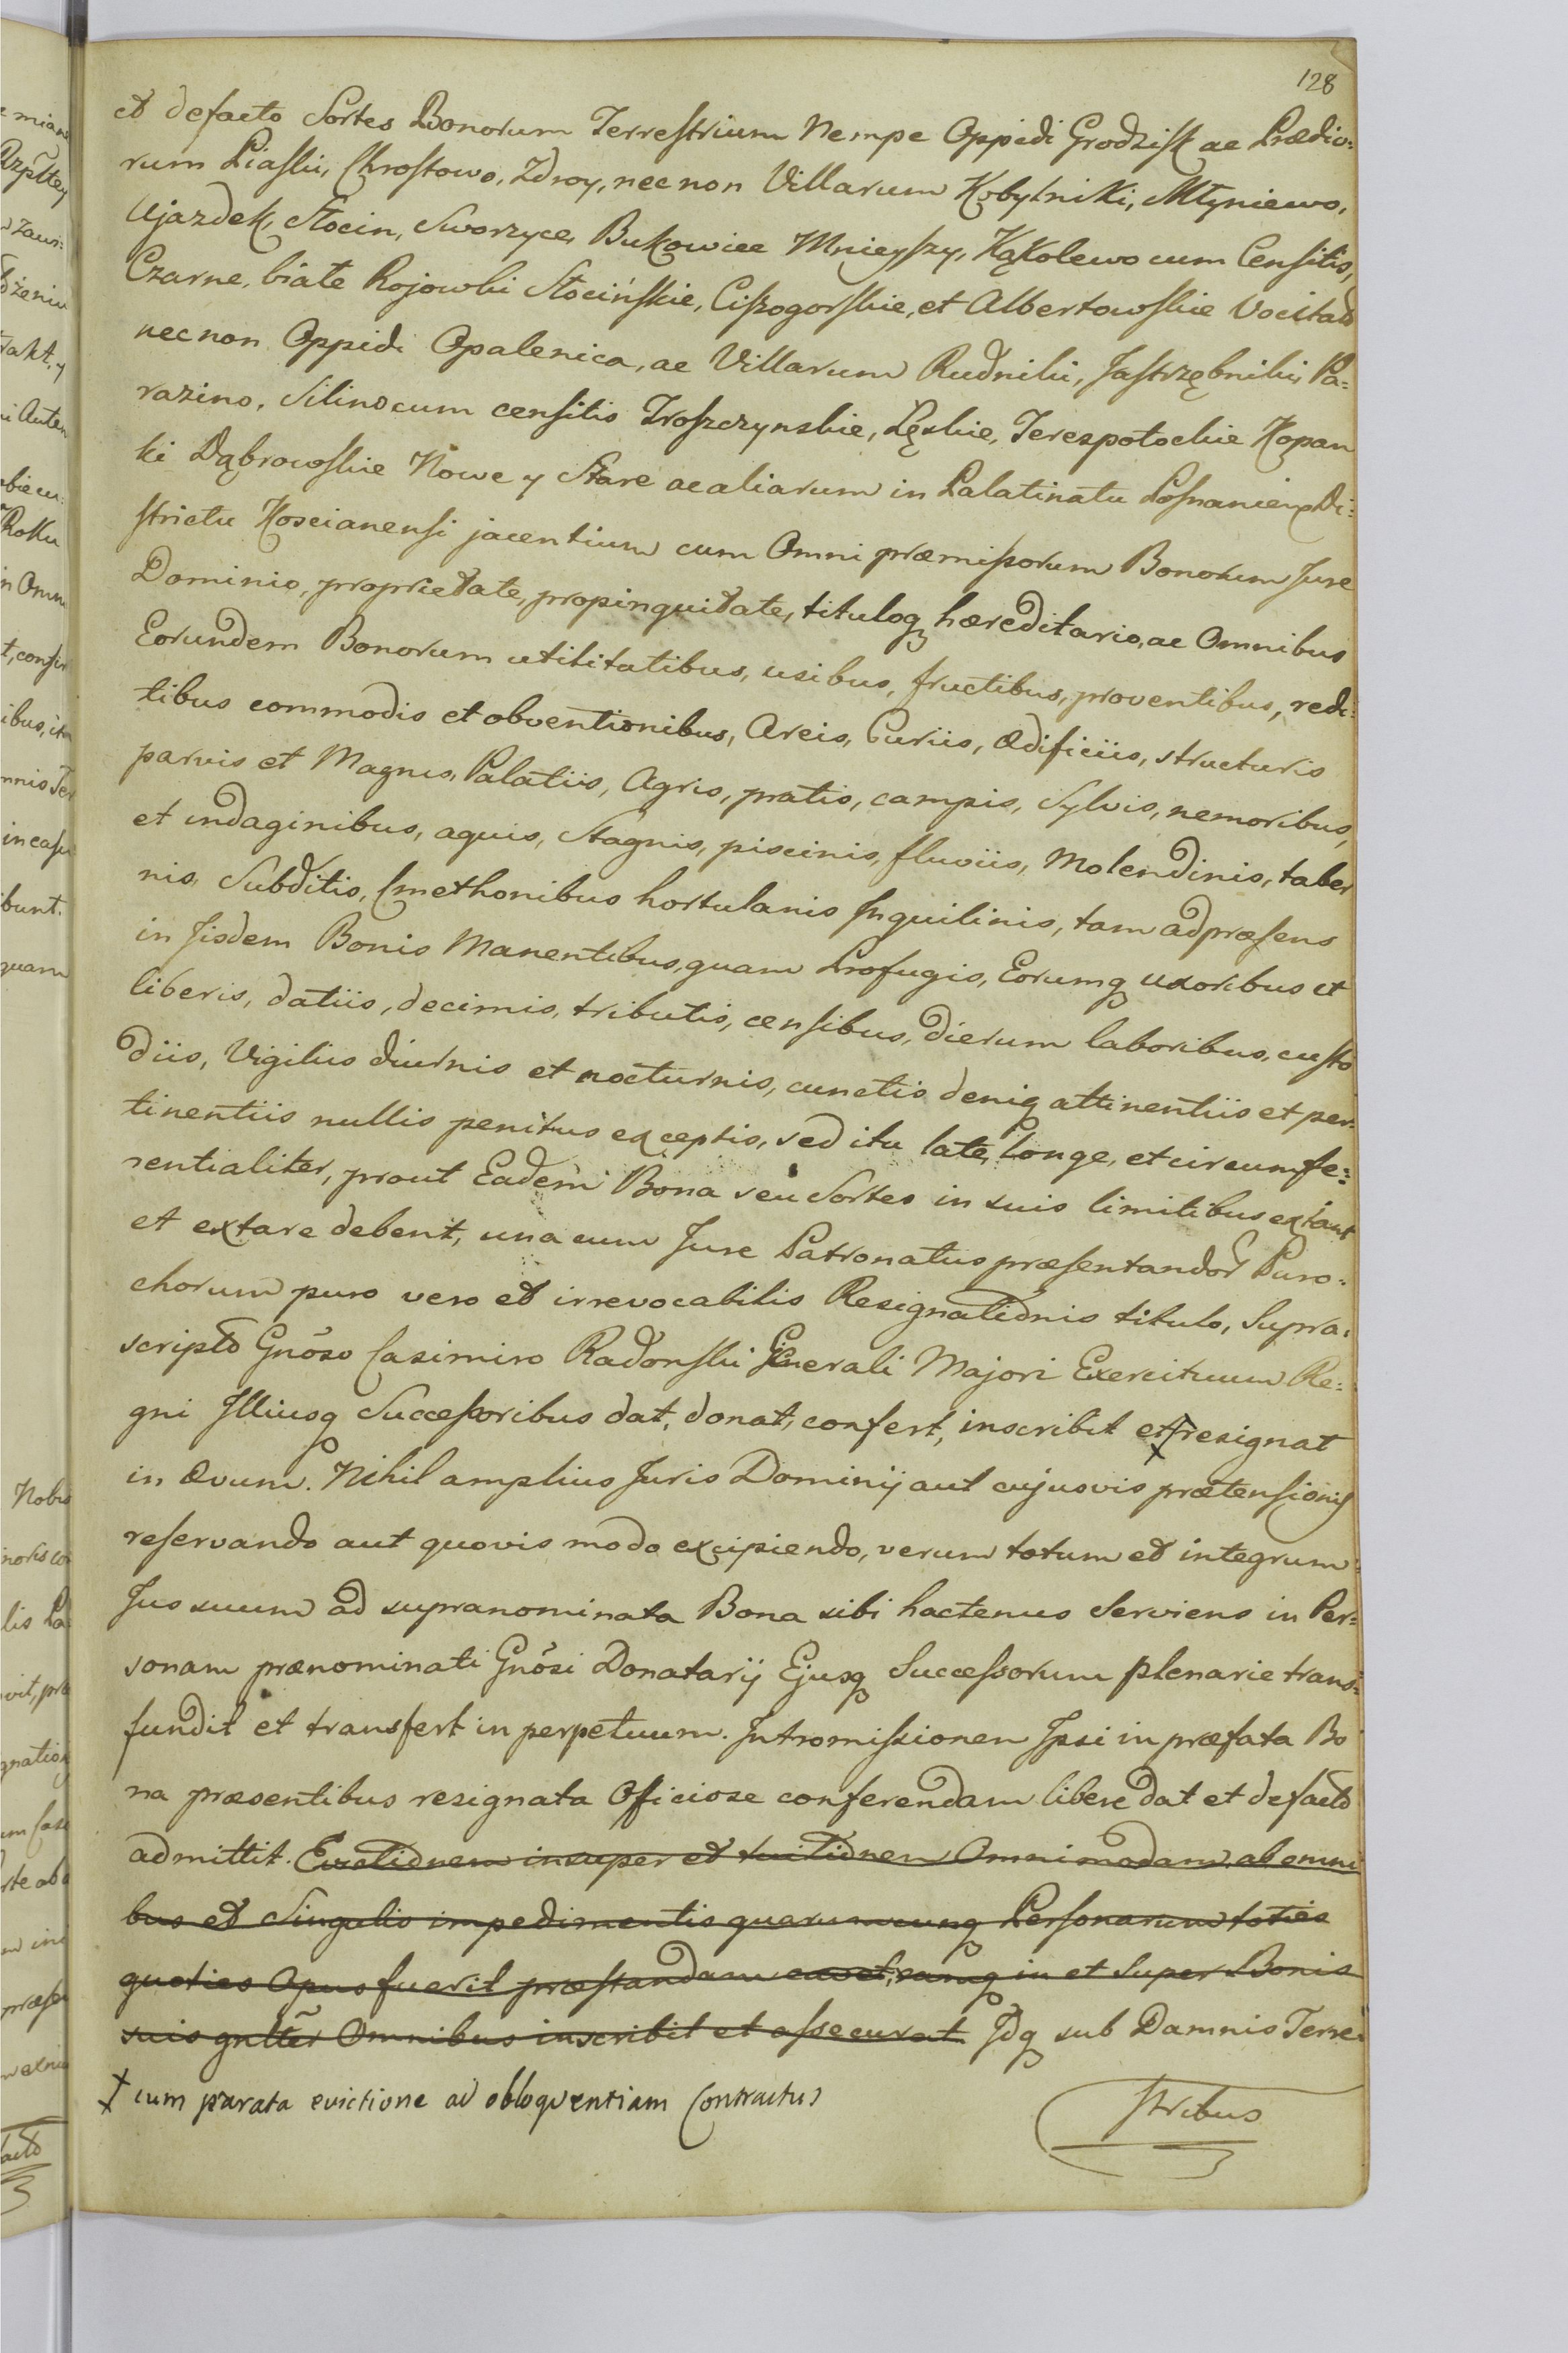 128
et defacto Sortes Bonorum Terrestrium Nempe Oppidi Grodzisk ac Prædio:
rum Piaski, Chrostowo, Zdroy, nec non Villarum Kobylniki, Młyniewo,
Ujazdek, Słocin, Sworzyce, Bukowiec Mnieyszy, Kąkolewo cum Censitis,
Czarne, białe Rojowski Słocińskie, Ciszogorskie, et Albertowskie Vocitatis
necnon Oppidi Opalenica, ac Villarum Rudniki, Jastrzębniki, Pa=
razino, Silino cum censitis Troszczynskie, Łęskie, Terespotockie Kopan
ki Dąbrowoskie Nowe y Stare ac aliarum in Palatinatu Posnanien Di:
strictu Koscianensi jacentium cum Omni præmissorum Bonorum Jure
Dominio, proprietate, propinquitate, tituloq hæreditario, ac Omnibus
Eorundem Bonorum utilitatibus, usibus, fructibus, proventibus, redi:
tibus commodis et obventionibus, Areis, Curiis, Ædificiis, structuris
parvis et Magnis, Palatiis, Agris, pratis, campis, Sylvis, nemoribus,
et indaginibus, aquis, Stagnis, piscinis, fluviis, Molendinis, taber
nis, Subditis, Cmethonibus hortulanis Inquilinis, tam ad præsens
in Iisdem Bonis Manentibus, quam Profugis, Eorumq uxoribus et
liberis, datiis, decimis, tributis, censibus, dierum laboribus, custo
diis, Vigiliis diurnis et nocturnis, cunctis deniq attinentiis et per:
tinentiis nullis penitus exceptis, sed ita late, longe, et circumfe:
rentialiter, prout Eadem Bona seu Sortes in suis limitibus extant
et extare debent, una cum Jure Patronatus præsentandor Paro:
chorum puro vero et irrevocabilis Resignationis titulo, Supra:
scripto Gnõso Casimiro Radonski Generali Majori Exercituum Re:
gni Illiusq Successoribus dat, donat, confert, inscribit et resignat
in Ævum. Nihil amplius Juris Dominij aut cujusvis prætensionis
reservando aut quovis modo excipiendo, verum totum et integrum
Jus suum ad supranominata Bona sibi hactenus Serviens in Per=
sonam prænominati Gnõsi Donatarij Ejusq Successorum plenarie trans:
fundit et transfert in perpetuum. Intromissionem Ipsi in præfata Bo
na præsentibus resignata Officiose conferendam libere dat et defacto
admittit. Evictionem insuper et tuitionem Omnimodam ab omni
bus et Singulis impedimentis quarumcunq Personarum toties
quoties Opus fuerit præstandam cavet, eamq in et Super Bonis
suis gnltẽr Omnibus inscribit et assecurat Idq sub Damnis Terre
cum parata evictione ad obloquentiam Contractus
stribus